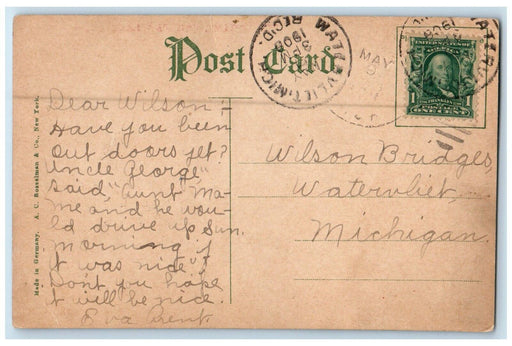 Post Card
WATERVLIET, MICH.
REC'D.
1908
MAY
1908
Dear Wilson:-
Have you been
out doors yet?
Uncle George
said, "Aunt Ma-
me and he wou-
ld drive up Sun.
morning if
it was nice".
Dont you hope
it will be nice.
Eva
Wilson Bridges,
Watervliet,
Michigan.
Made in Germany. A. C. Bosselman & Co., New York.